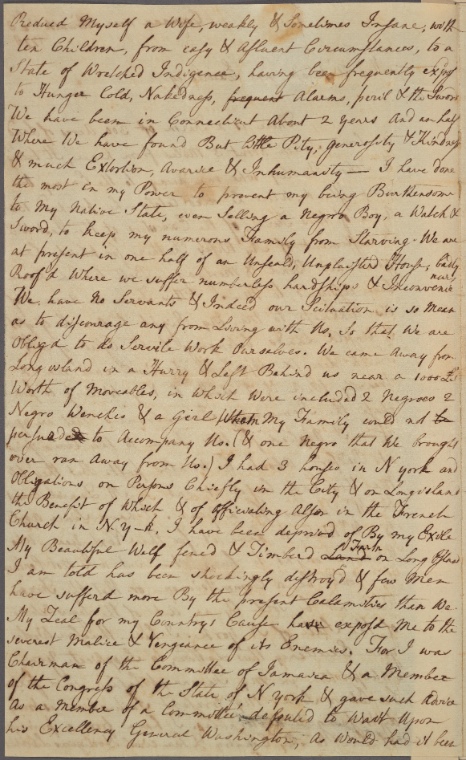 Reduced Myself a Wife, weakly & Sometimes Insane, with
ten Children, from easy & Afluent Circumstances, to a
State of Wretched Indigence, having been frequently expos
to Hunger Cold, Nakedness, frequent Alarms, peril & the Sword
We have been in Connecticut About 2 years And an half
Where We have found But little Pity, generosity & Kindness
& much Extortion, Avarice & Inhumanity — I have done
the most in my Power to prevent my being Burthensom
to My Native State, even Selling a Negro Boy, a Watch &
Sword, to keep my numerous Family from Starving. We are
at present in one half of an Unseald, Unplaisterd House, badly
Roof'd Where we suffer numberless hardships & Inconvenien
We have No Servants & Indeed our Scituation is so Mean
as to discourage any from Living with Us, So that We are
Obliged to do Servile Work Ourselves. We came Away from
Long island in a Hurry & Left Behind us near a 1000 £
Worth of Moveables, in which Were included 2 Negroes 2
Negro Wenches & a Girl Whom My Family could not be
persuaded to Accompany Us. (& one Negro that We brought
over ran Away from Us.) I had 3 houses in N york and
Obligations on Persons Chiefly in the City & on Long island
the Benefit of Which & of officiating Also in the French
Church in N Y-k. I have been deprived of By my Exile
My Beautiful Well fenced & Timberd Land Farm on Long Island
I am told has been shockingly destroyd & few Men
have sufferd more By the present Calamities than We
My Zeal for my Country's Cause have exposd Me to the
severest Malice & Vengeance of its Enemies. For I was
Chairman of the Committee of Jamaica & a Member
of the Congress of the State of N York & gave such Advice
As a Member of a Committee deputed to Wait Upon
his Excellency General Washington, As Would had it been